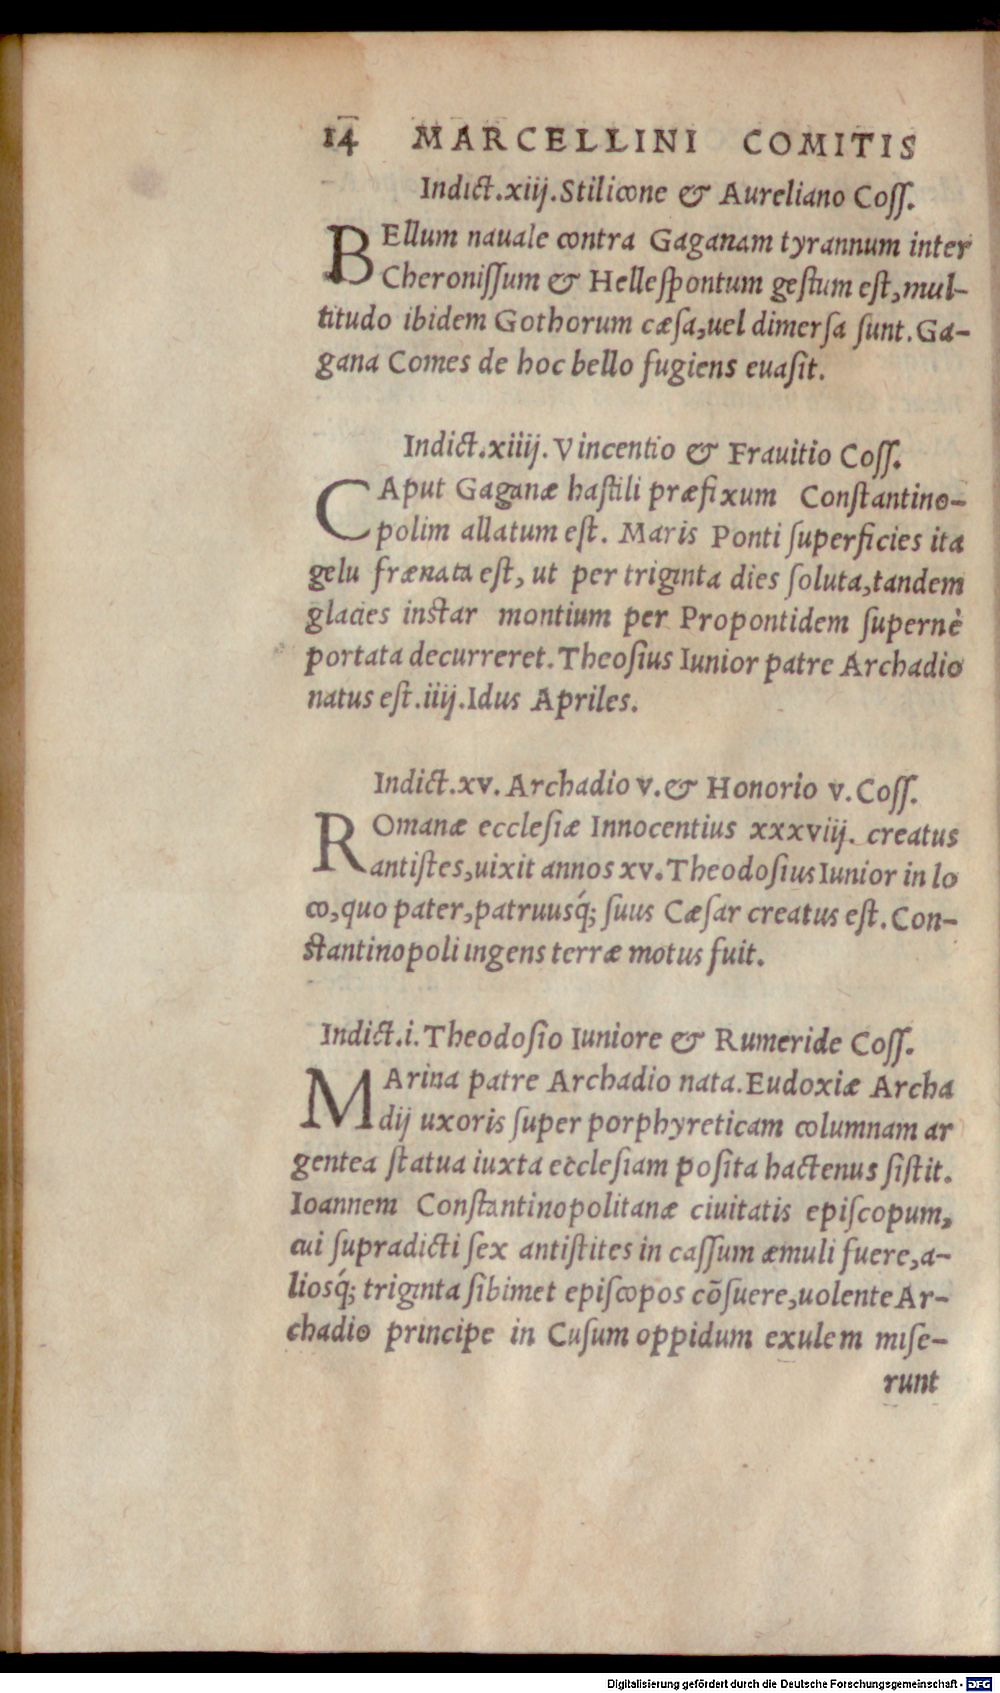 14 MARCELLINI COMITIS
Indict.xiij.Stilicone & Aureliano Coſſ.
BEllum nauale contra Gaganam tyrannum inter
Cheroniſſum & Helleſpontum geſtum eſt,mul-
titudo ibidem Gothorum cæſa,uel dimerſa ſunt.Ga-
gana Comes de hoc bello fugiens euaſit.
Indict.xiiij.Vincentio & Frauitio Coſſ.
CAput Gaganæ haſtili præfixum Conſtantino-
polim allatum eſt. Maris Ponti ſuperficies ita
gelu frænata eſt, ut per triginta dies ſoluta,tandem
glacies instar montium per Propontidem ſupernè
portata decurreret.Theoſius Iunior patre Archadio
natus eſt.iiij.Idus Apriles.
Indict.xv. Archadio v.& Honorio v.Coſſ.
ROmanæ eccleſiæ Innocentius xxxviij. creatus
antiſtes,uixit annos xv.Theodoſius Iunior in lo
co,quo pater,patruusq́; ſuus Cæſar creatus eſt.Con-
stantinopoli ingens terræ motus fuit.
Indict.i.Theodoſio Iuniore & Rumeride Coſſ.
MArina patre Archadio nata.Eudoxiæ Archa
dij uxoris ſuper porphyreticam columnam ar
gentea ſtatua iuxta eccleſiam poſita hactenus ſiſtit.
Ioannem Conſtantinopolitanæ ciuitatis epiſcopum,
cui ſupradicti ſex antiſtites in caſſum æmuli fuere,a-
liosq́; triginta ſibimet epiſcopos cõſuere,uolente Ar-
chadio principe in Cuſum oppidum exulem miſe-
runt
Digitalisierung gefördert durch die Deutsche Forschungsgemeinschaft - DFG